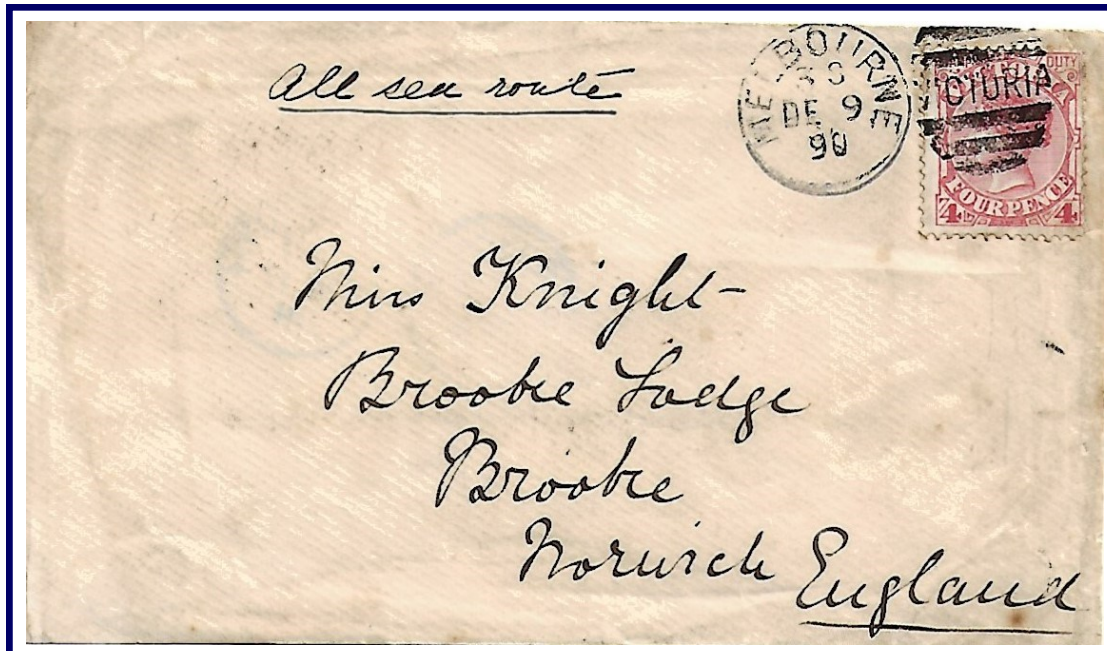 All sea route
MELBOURNE
DE 9
90
DUTY
VICTORIA
FOUR PENCE
4 4
Miss Knight-
Brooke Lodge
Brooke
Norwich
England